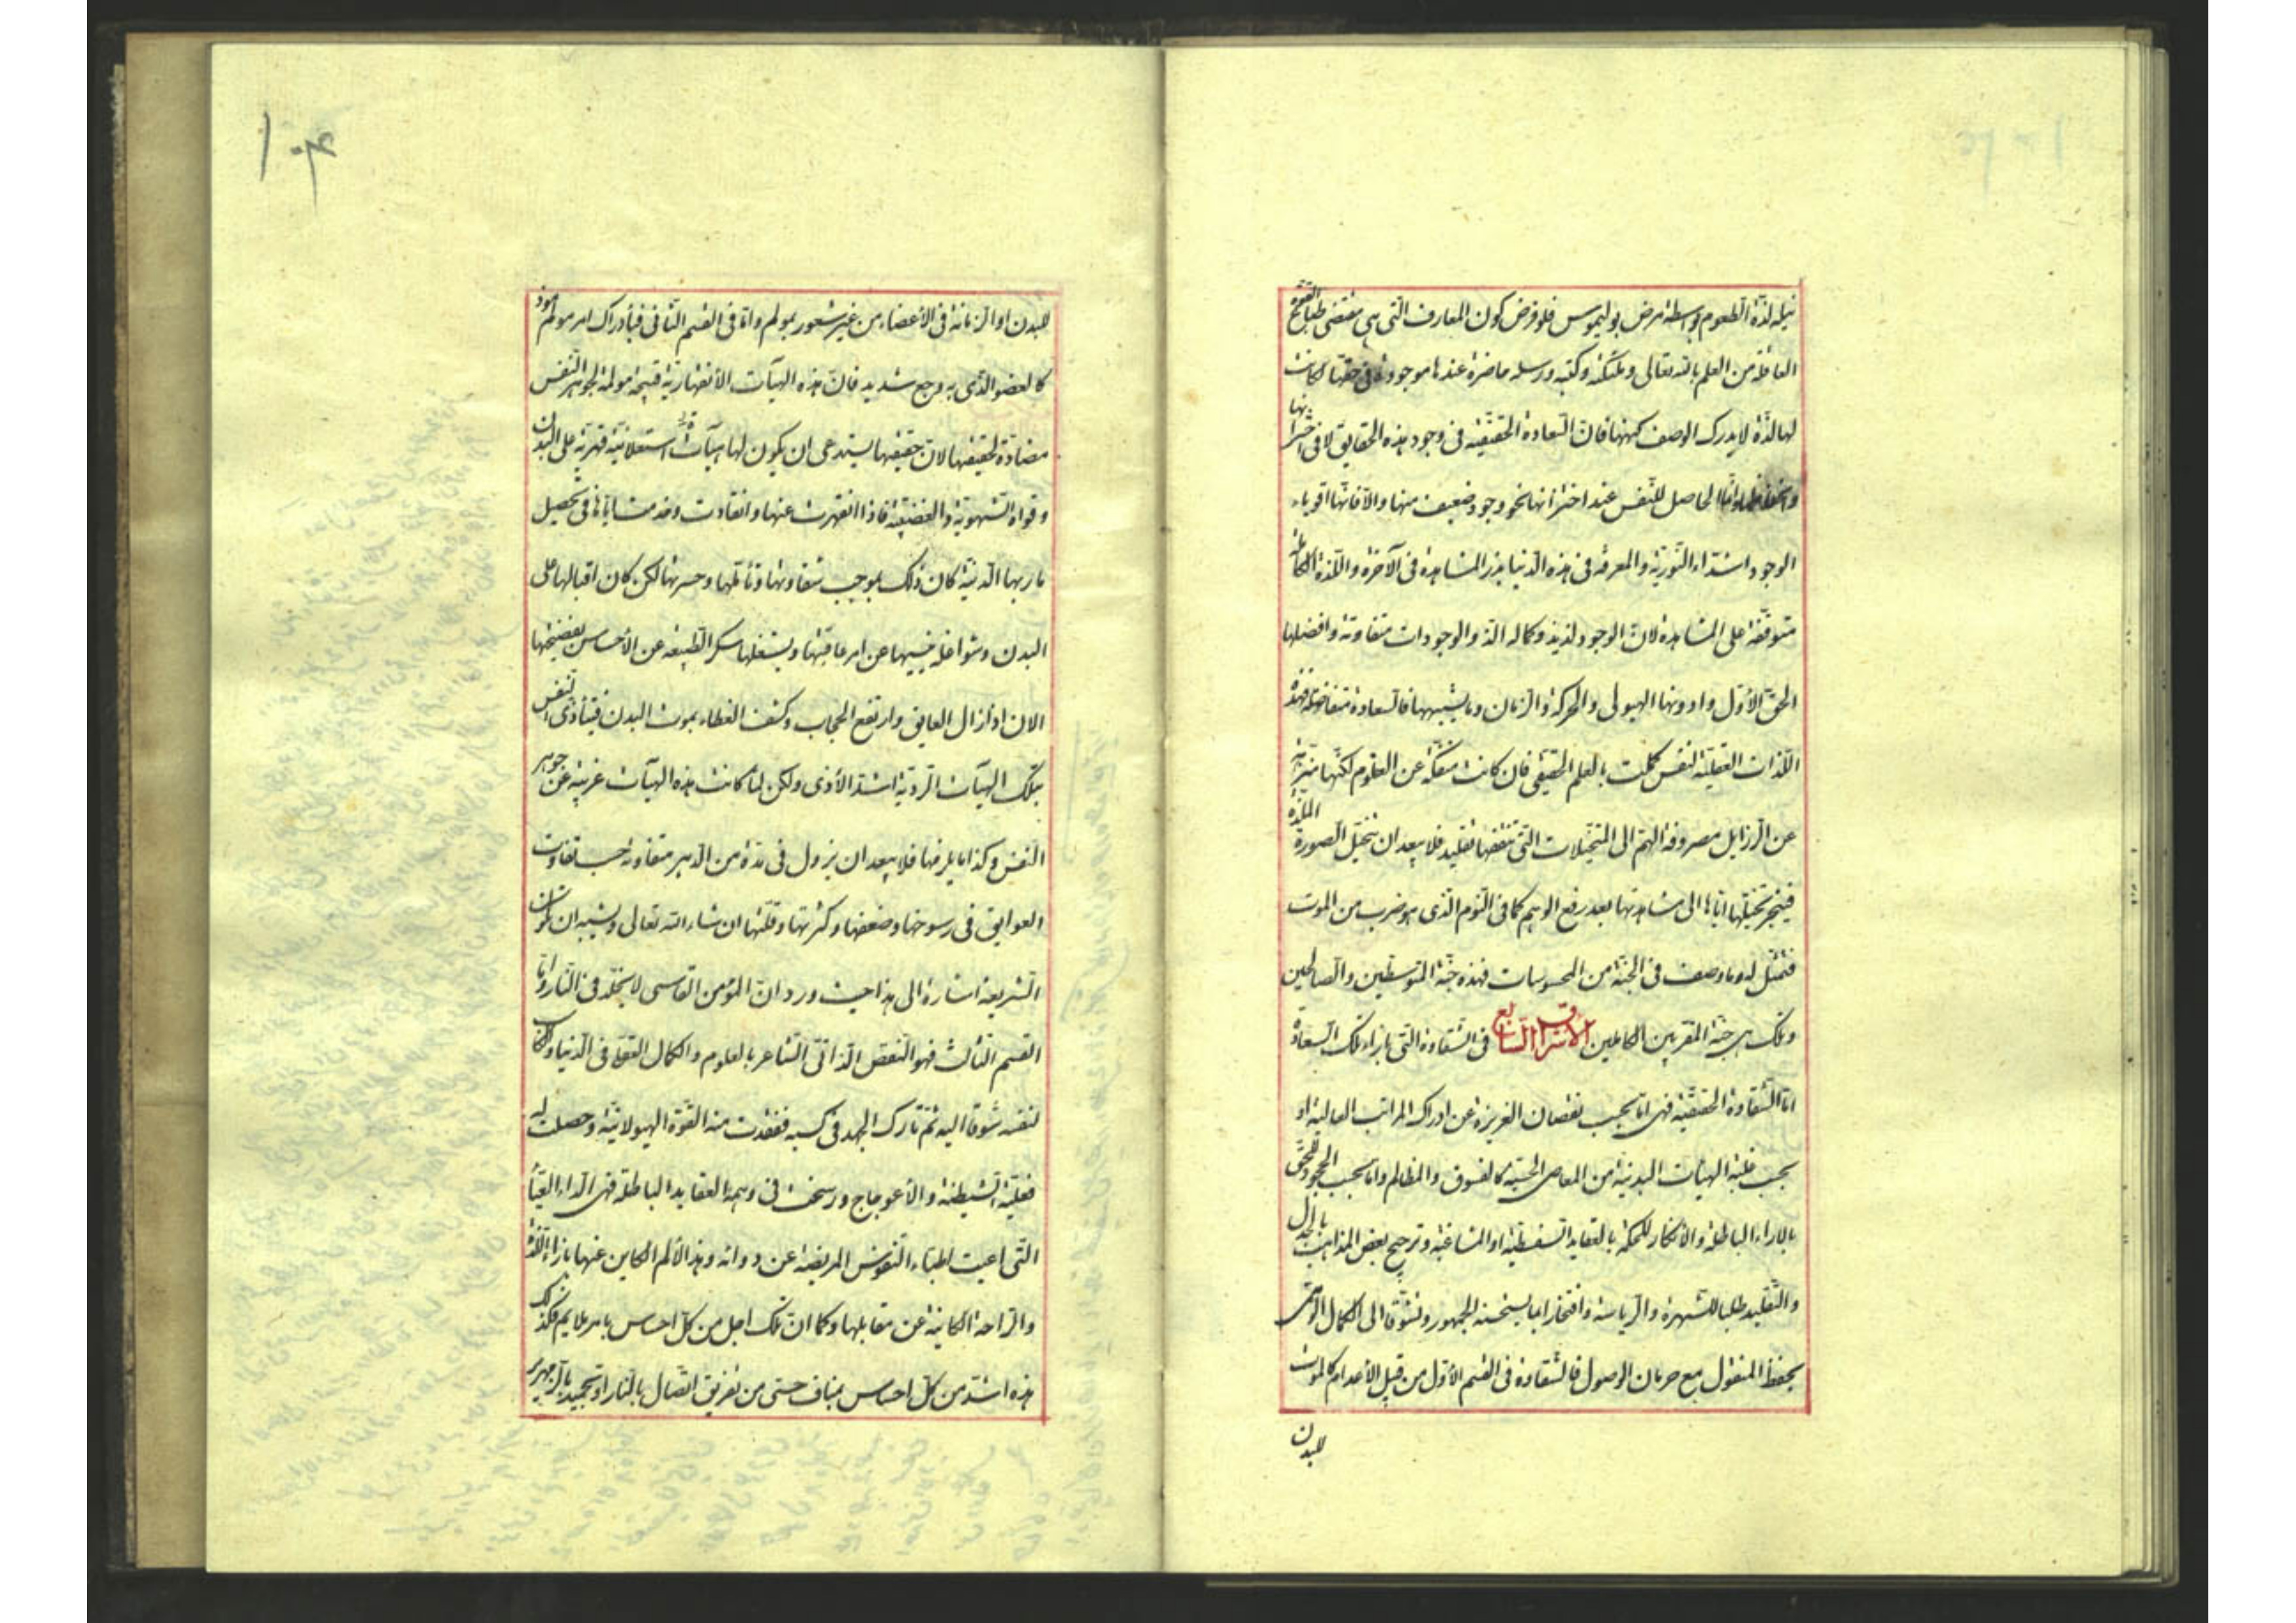 نيله لذة الطعوم بواسطة مرض بوليموس فلو فرض كون المعارف التى هى مقتضى طباع القوة
العاقلة من العلم بالله تعالى وملئكته وكتبه ورسله حاضرة عندها موجودة فى حقها كانت
لها لذة لا يدرك الوصف كنهها فان السعادة الحقيقيه فى وجود هذه الحقايق لا فى اختزانها
الحاصل للنفس عند اختزانها نحو وجود ضعيف منها والا فانها اقوياء
الوجود اشداء النورية والمعرفة فى هذه الدنيا بذر المشاهدة فى الآخرة واللذة الكاملة
متوقفة على المشاهدة لان الوجود لذيذ وكماله الذ والوجودات متفاوتة وافضلها
الحق الاول وادونها الهيولى والحركة والزمان وما يشبهها فالسعادة متفاضلة فهذه
اللذات العقلية لنفس كملت بالعلم الحقيقى فان كانت منفكة عن العلوم لكنها منزهة
عن الرزايل مصروفة الهم الى المتخيلات التى تلقفها تقليد فلا يبعد ان تتخيل الصورة الملذة
فينجر تخيلها اياها الى مشاهدتها بعد رفع الوهم كما فى النوم الذى هو ضرب من الموت
فتمثل له ما وصف فى الجنة من المحسوسات فهذه جنة المتوسطين والصالحين
وتلك هى جنة المقربين الكاملين الاشراق السابع فى الشقاوة التى بازاء تلك السعادة
اما الشقاوة الحقيقية فهى اما بحسب نقصان الغريزة عن ادراك المراتب العالية او
بحسب غلبة الهيئات البدنية من المعاصى الحسية كالفسوق والمظالم واما بحسب الجحود للحق
بالاراء الباطلة والانكار للحكمة بالعقايد السفسطية او المشاغبية وترجيح بعض المذاهب بالجدال
والتقليد طلبا للشهرة والرياسة وافتخارا بما يستحسنه الجمهور وتشوقا الى الكمال الوهمى
بحفظ المنقول مع حرمان الوصول فالشقاوة فى القسم الاول من قبل الأعدام كالموت
للبدن
١٠٤
للبدن او الزمانة فى الأعضاء من غير شعور بمولم واما فى القسم الثانى فبأدراك امر مولم موذ
كالعضو الذى به وجع شديد فان هذه الهيآت الأنقهارية قبيحة مولمة لجوهر النفس
مضادة لحقيقتها لان حقيقتها يستدعى ان يكون لها هيآت استعلائية قهرية على البدن
وقواه الشهوية والغضبية فاذا انقهرت عنها وانقادت وخدمت اياها فى تحصيل
ماربها الدنية كان ذلك بموجب شقاوتها وتألمها وحسرتها لكن كان اقبالها على
البدن وشواغله ينسيها عن امر عاقبتها ويشغلها سكر الطبيعة عن الأحساس بفضيحتها
الان اذا زال العايق وارتفع الحجاب وكشف الغطاء بموت البدن فيتأذى النفس
بتلك الهيآت الردية اشد الأذى ولكن لما كانت هذه الهيآت غريبة عن جوهر
النفس وكذا ما يلزمها فلا يبعد ان يزول فى مدة من الدهر متفاوتة حسب تفاوت
العوايق فى رسوخها وضعفها وكثرتها وقلتها ان شاء الله تعالى ويشبه ان تكون
الشريعة اشارة الى هذا حيث ورد ان المؤمن الفاسق لا يخلد فى النار واما
القسم الثالث فهو النقص الذاتى الشاعر بالعلوم والكمال العقلى فى الدنيا والكاسب
لنفسه شوقا اليه ثم تارك الجهد فى كسبه ففقدت منه القوة الهيولانية وحصلت له
فعلية الشيطنة والأعوجاج ورسخت فى وهمه العقايد الباطلة فهى الداء العياء
التى اعيت اطباء النفوس المريضة عن دوائه وهذا الألم الكاين عنها بازاء اللذة
والراحة الكائنة عن مقابلها وكما ان تلك اجل من كل احساس بامر ملايم فكذلك
هذه اشد من كل احساس بمناف حسى من تفريق اتصال بالنار او تجميد بالزمهرير